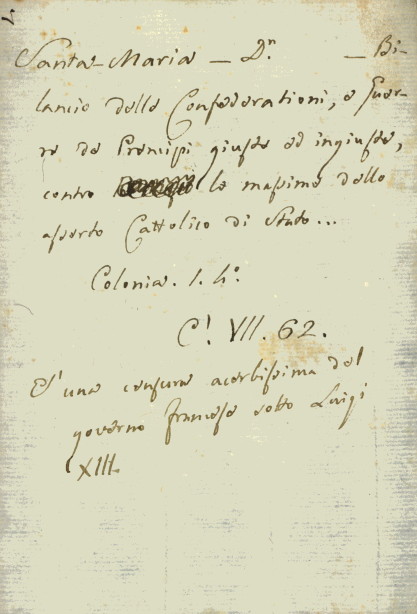 Santa-Maria — D.n — Bi-
lancio delle Confederationi, e Guer-
re de Prencipi giuste ed ingiuste,
contro le massime dello
asserto Cattolico di Stato...
Colonia. 1. 4.o
C! VII. 62.
E' una censura acerbissima del
governo francese sotto Luigi
XIII.